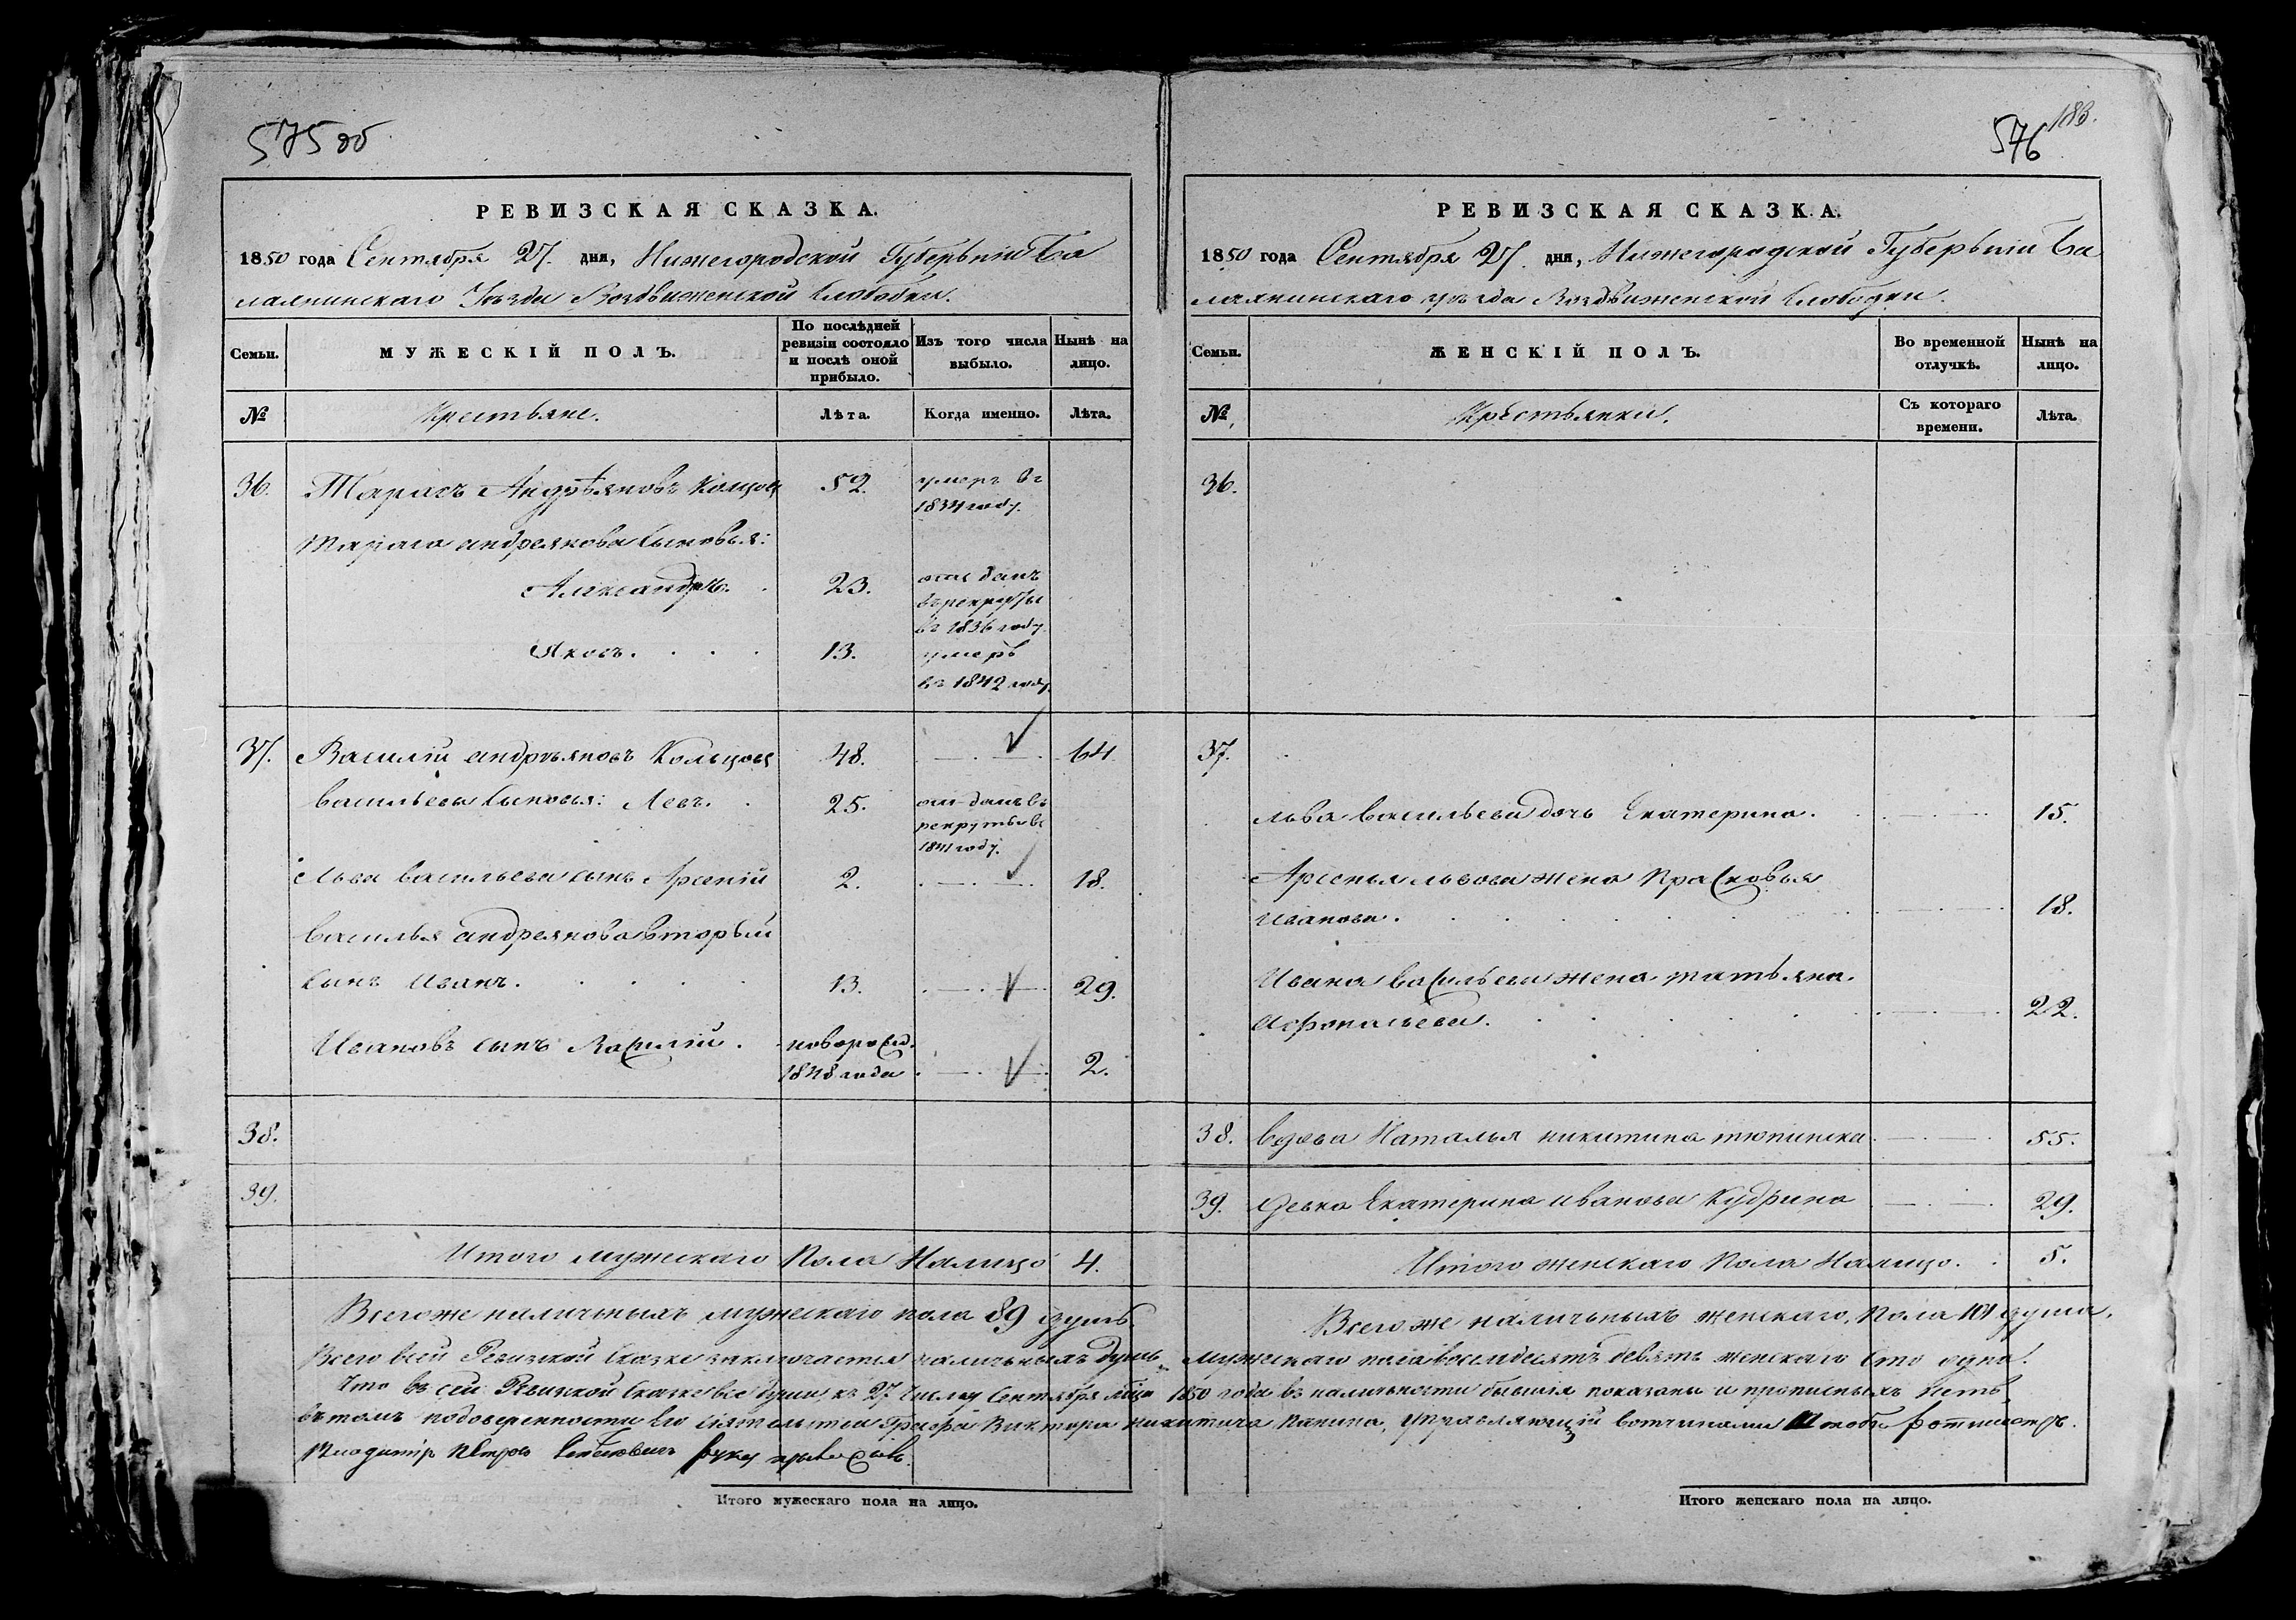 575 об
РЕВИЗСКАЯ СКАЗКА.
1850 года Сентября 27. дня, Нижегородской Губерънии Ба
лахнинскаго Уѣзда Воздвиженской Слободки.
Семьи.
МУЖЕСКІЙ ПОЛЪ.
По послѣдней
ревизіи состояло
и послѣ оной
прибыло.
Изъ того числа
выбыло.
Нынѣ на
лицо.
№
Крестьяне.
Лѣта.
Когда именно.
Лѣта.
36. Тарасъ Андрѣяновъ Кольцов 52. умеръ въ
1834 году.
Тараса андреянова сыновья:
Александръ. 23. отданъ
въ рекруты
въ 1836 году
Яковъ. 13. умеръ
въ 1842 году.
37. Василій андрѣяновъ Кольцовъ 48. 64.
васильева сыновья: Левъ. 25. отданъ въ
рекруты въ
1841 году.
Льва васильева сынъ Арсеній 2. 18.
василья андреянова вторый
сынъ Иванъ. 13. 29.
Ивановъ сынъ Василій. новорожд.
1848 года 2.
38.
39.
Итого мужескаго Пола Налицо 4.
Всего же наличныхъ мужескаго пола 89 душъ.
576 183.
РЕВИЗСКАЯ СКАЗКА.
1850 года Сентября 27. дня, Нижегородской Губерьніи Ба
лахнинскаго уѣзда Воздвиженской Слободки.
Семьи.
ЖЕНСКІЙ ПОЛЪ.
Во временной
отлучкѣ.
Нынѣ на
лицо.
№
Крестьянки.
Съ котораго
времени.
Лѣта.
36.
37.
Льва васильева дочь Екатерина. 15.
Арсенья львова жена Прасковья
Иванова. 18.
Ивана васильева жена татьяна
Афонасьева. 22.
38. вдова Наталья никитина тюпинска 55.
39. девка Екатерина иванова Кудрина 29.
Итого женскаго Пола Налицо. 5.
Всего же наличьныхъ женскаго Пола 101 душа.
Всего въ сей Ревизской Сказке заключается наличныхъ душъ мужескаго пола восемдесятъ девять женскаго сто одна.
Что въ сей Ревизкой Сказке все души къ 27 числу Сентября мца 1850 года въ наличности бывшія показаны и прописныхъ нетъ
въ томъ по доверенности Его Сіятельства Графа Виктора никитича панина, управляющій вотчинами Штабъ ротмистръ
Владиміръ Петровъ руку приложилъ.
Итого мужескаго пола на лицо.
Итого женскаго пола на лицо.